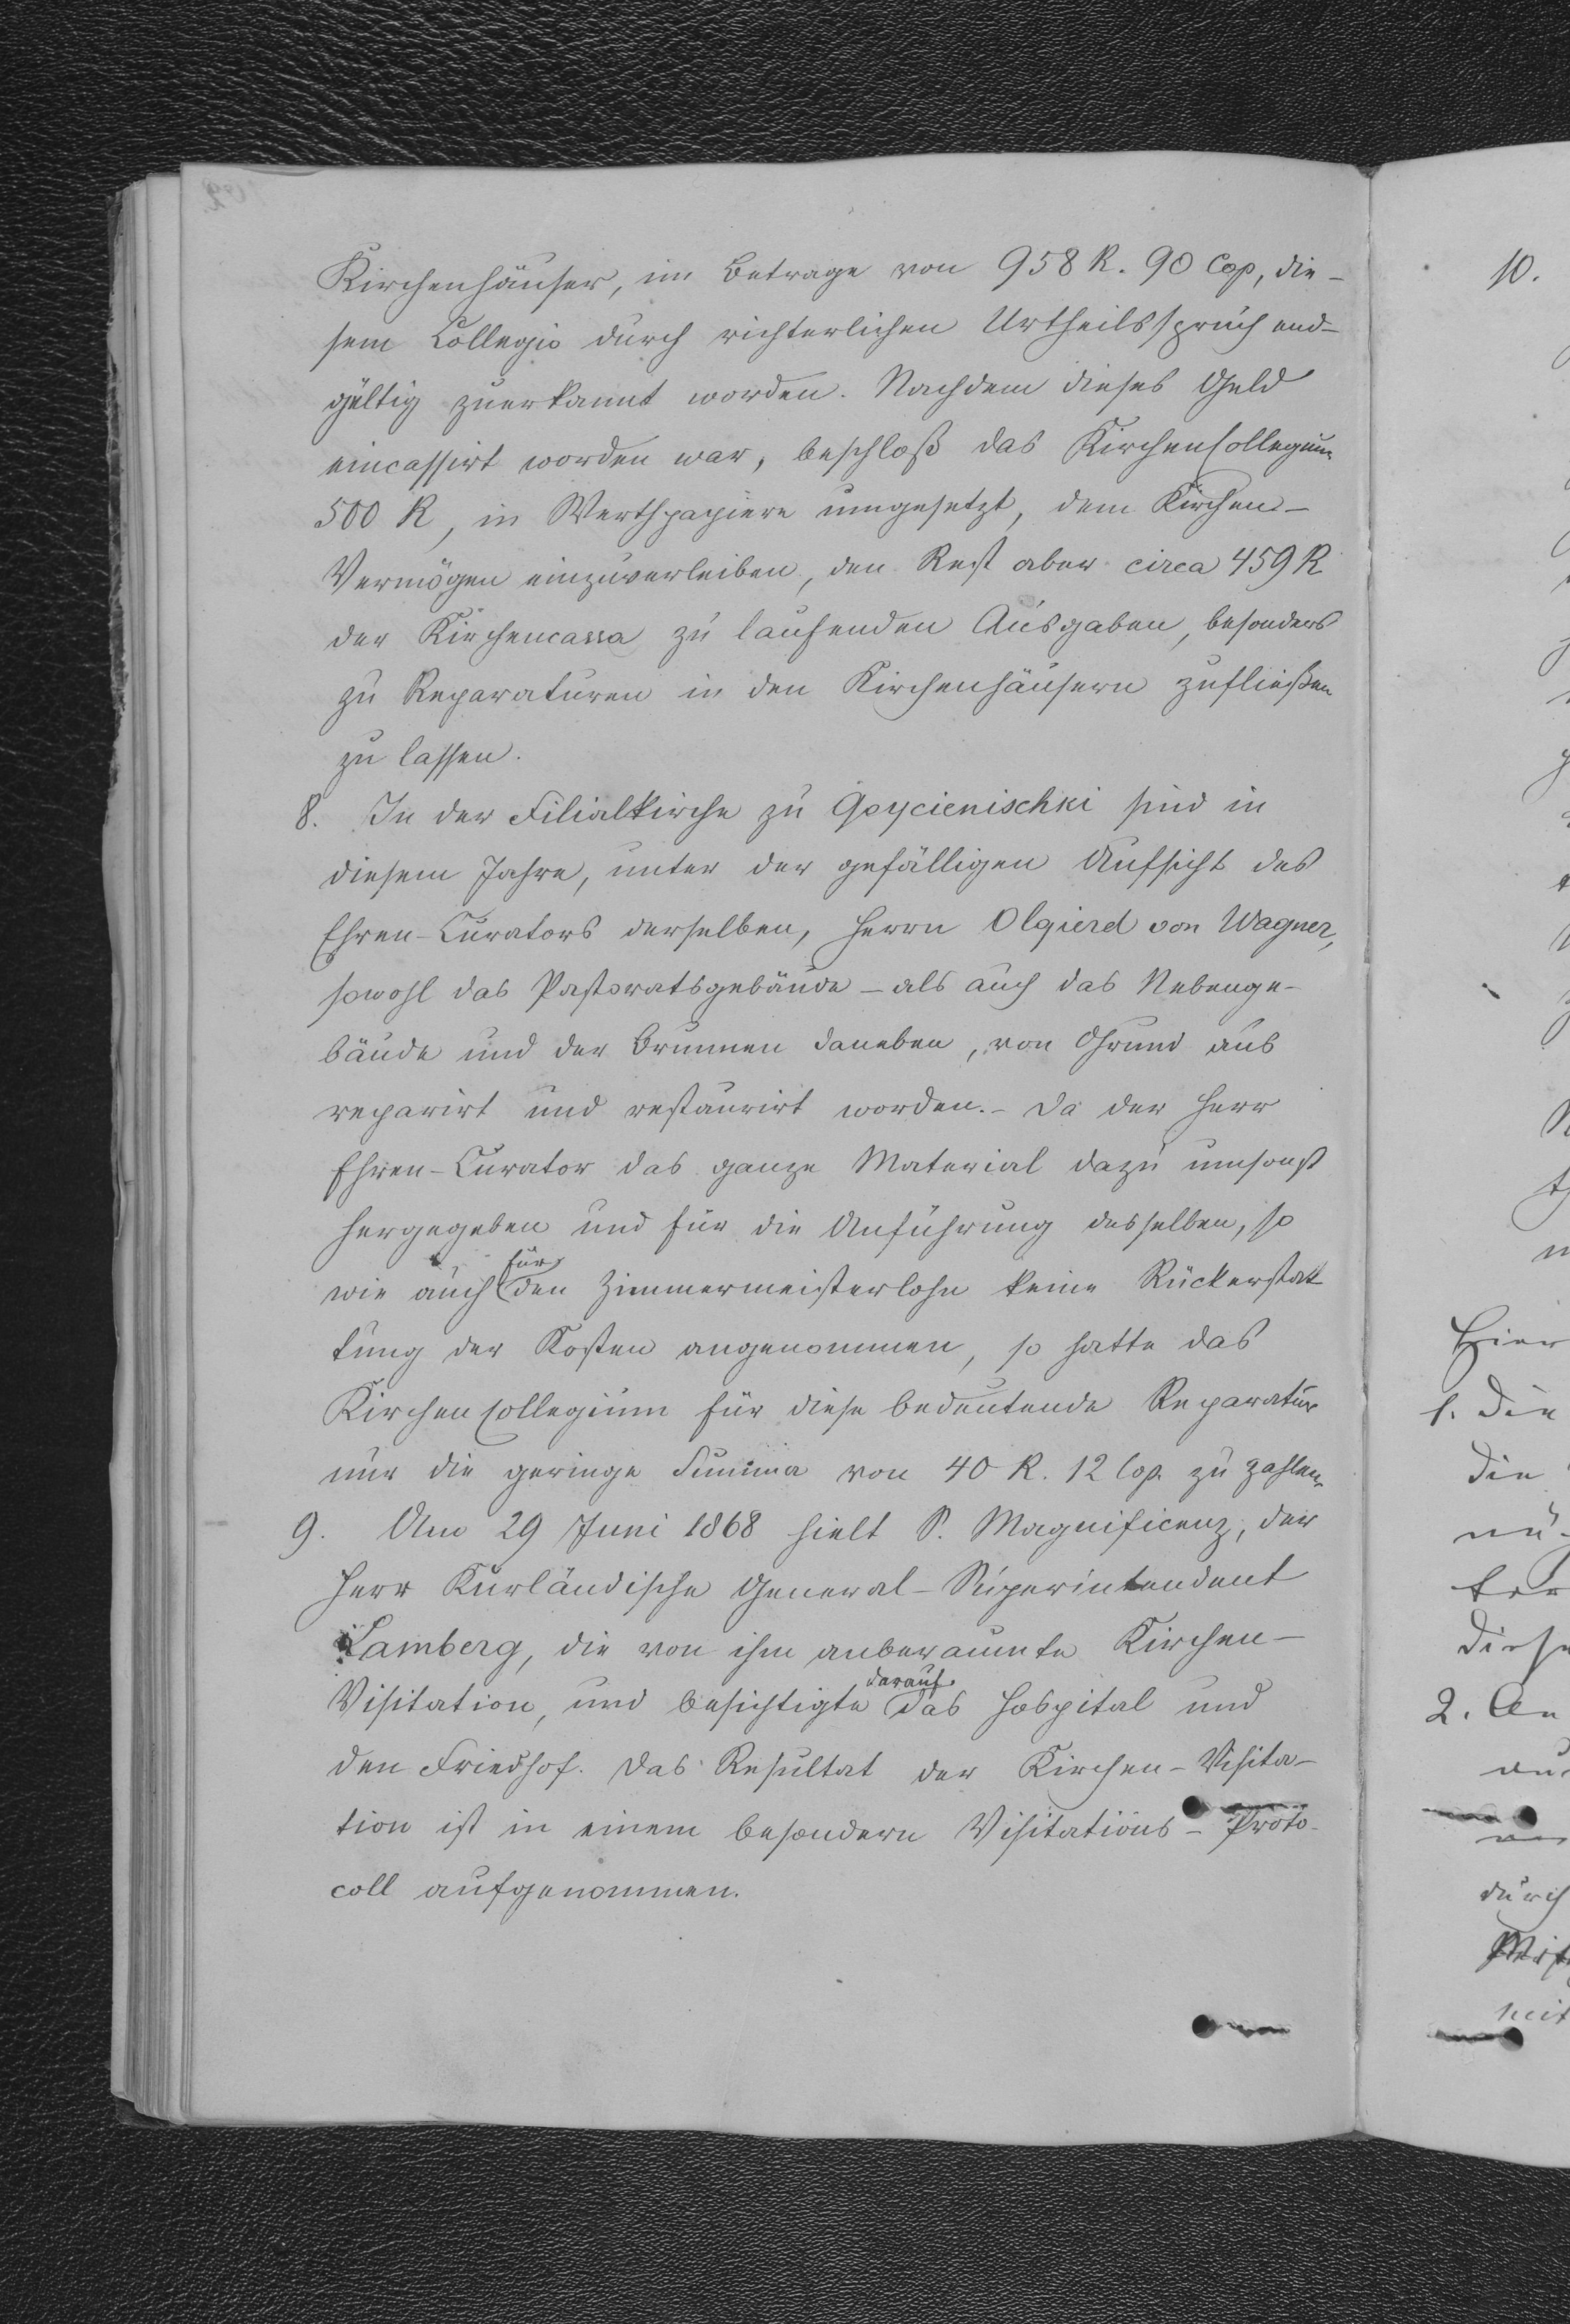 Kirchenhäuser, im Betrage von 958 R. 90 Cop, die-
sem Collegio durch richterlichen Urtheilsspruch end-
gültig zuerkannt worden. Nachdem dieses Geld
eincassirt worden war, beschloß das Kirchencollegium
500 R, in Werthpapiere umgesetzt, dem Kirchen-
Vermögen einzuverleiben, den Rest aber circa 459 R
der Kirchencassa zu laufenden Ausgaben, besonders
zu Reparaturen in den Kirchenhäusern zufließen
zu lassen.
8. In der Filialkirche zu Goycienischki sind in
diesem Jahre, unter der gefälligen Aufsicht des
Ehren-Curators derselben, Herrn Olgierd von Wagner,
sowohl das Pastoratsgebäude - als auch das Nebenge-
bäude und der Brunnen daneben, von Grund aus
reparirt und restaurirt worden. - Da der Herr
Ehren-Curator das ganze Material dazu umsonst
hergegeben und für die Anführung desselben, so
wie auch für den Zimmermeisterlohn keine Rückerstat
tung der Kosten angenommen, so hatte das
Kirchencollegium für diese bedeutende Reparatur
nur die geringe Summa von 40 R. 12 Cop. zu zahlen.
9. Am 29 Juni 1868 hielt S. Magnificenz, der
Herr Kurländische General-Superintendent
Lamberg, die von ihm anberaumte Kirchen-
Visitation, und besichtigte darauf das Hospital und
den Friedhof. Das Resultat der Kirchen-Visita-
tion ist in einem besondern Visitations-Proto-
coll aufgenommen.
10.
Hier
1. Die
die
diese
2. An
durch